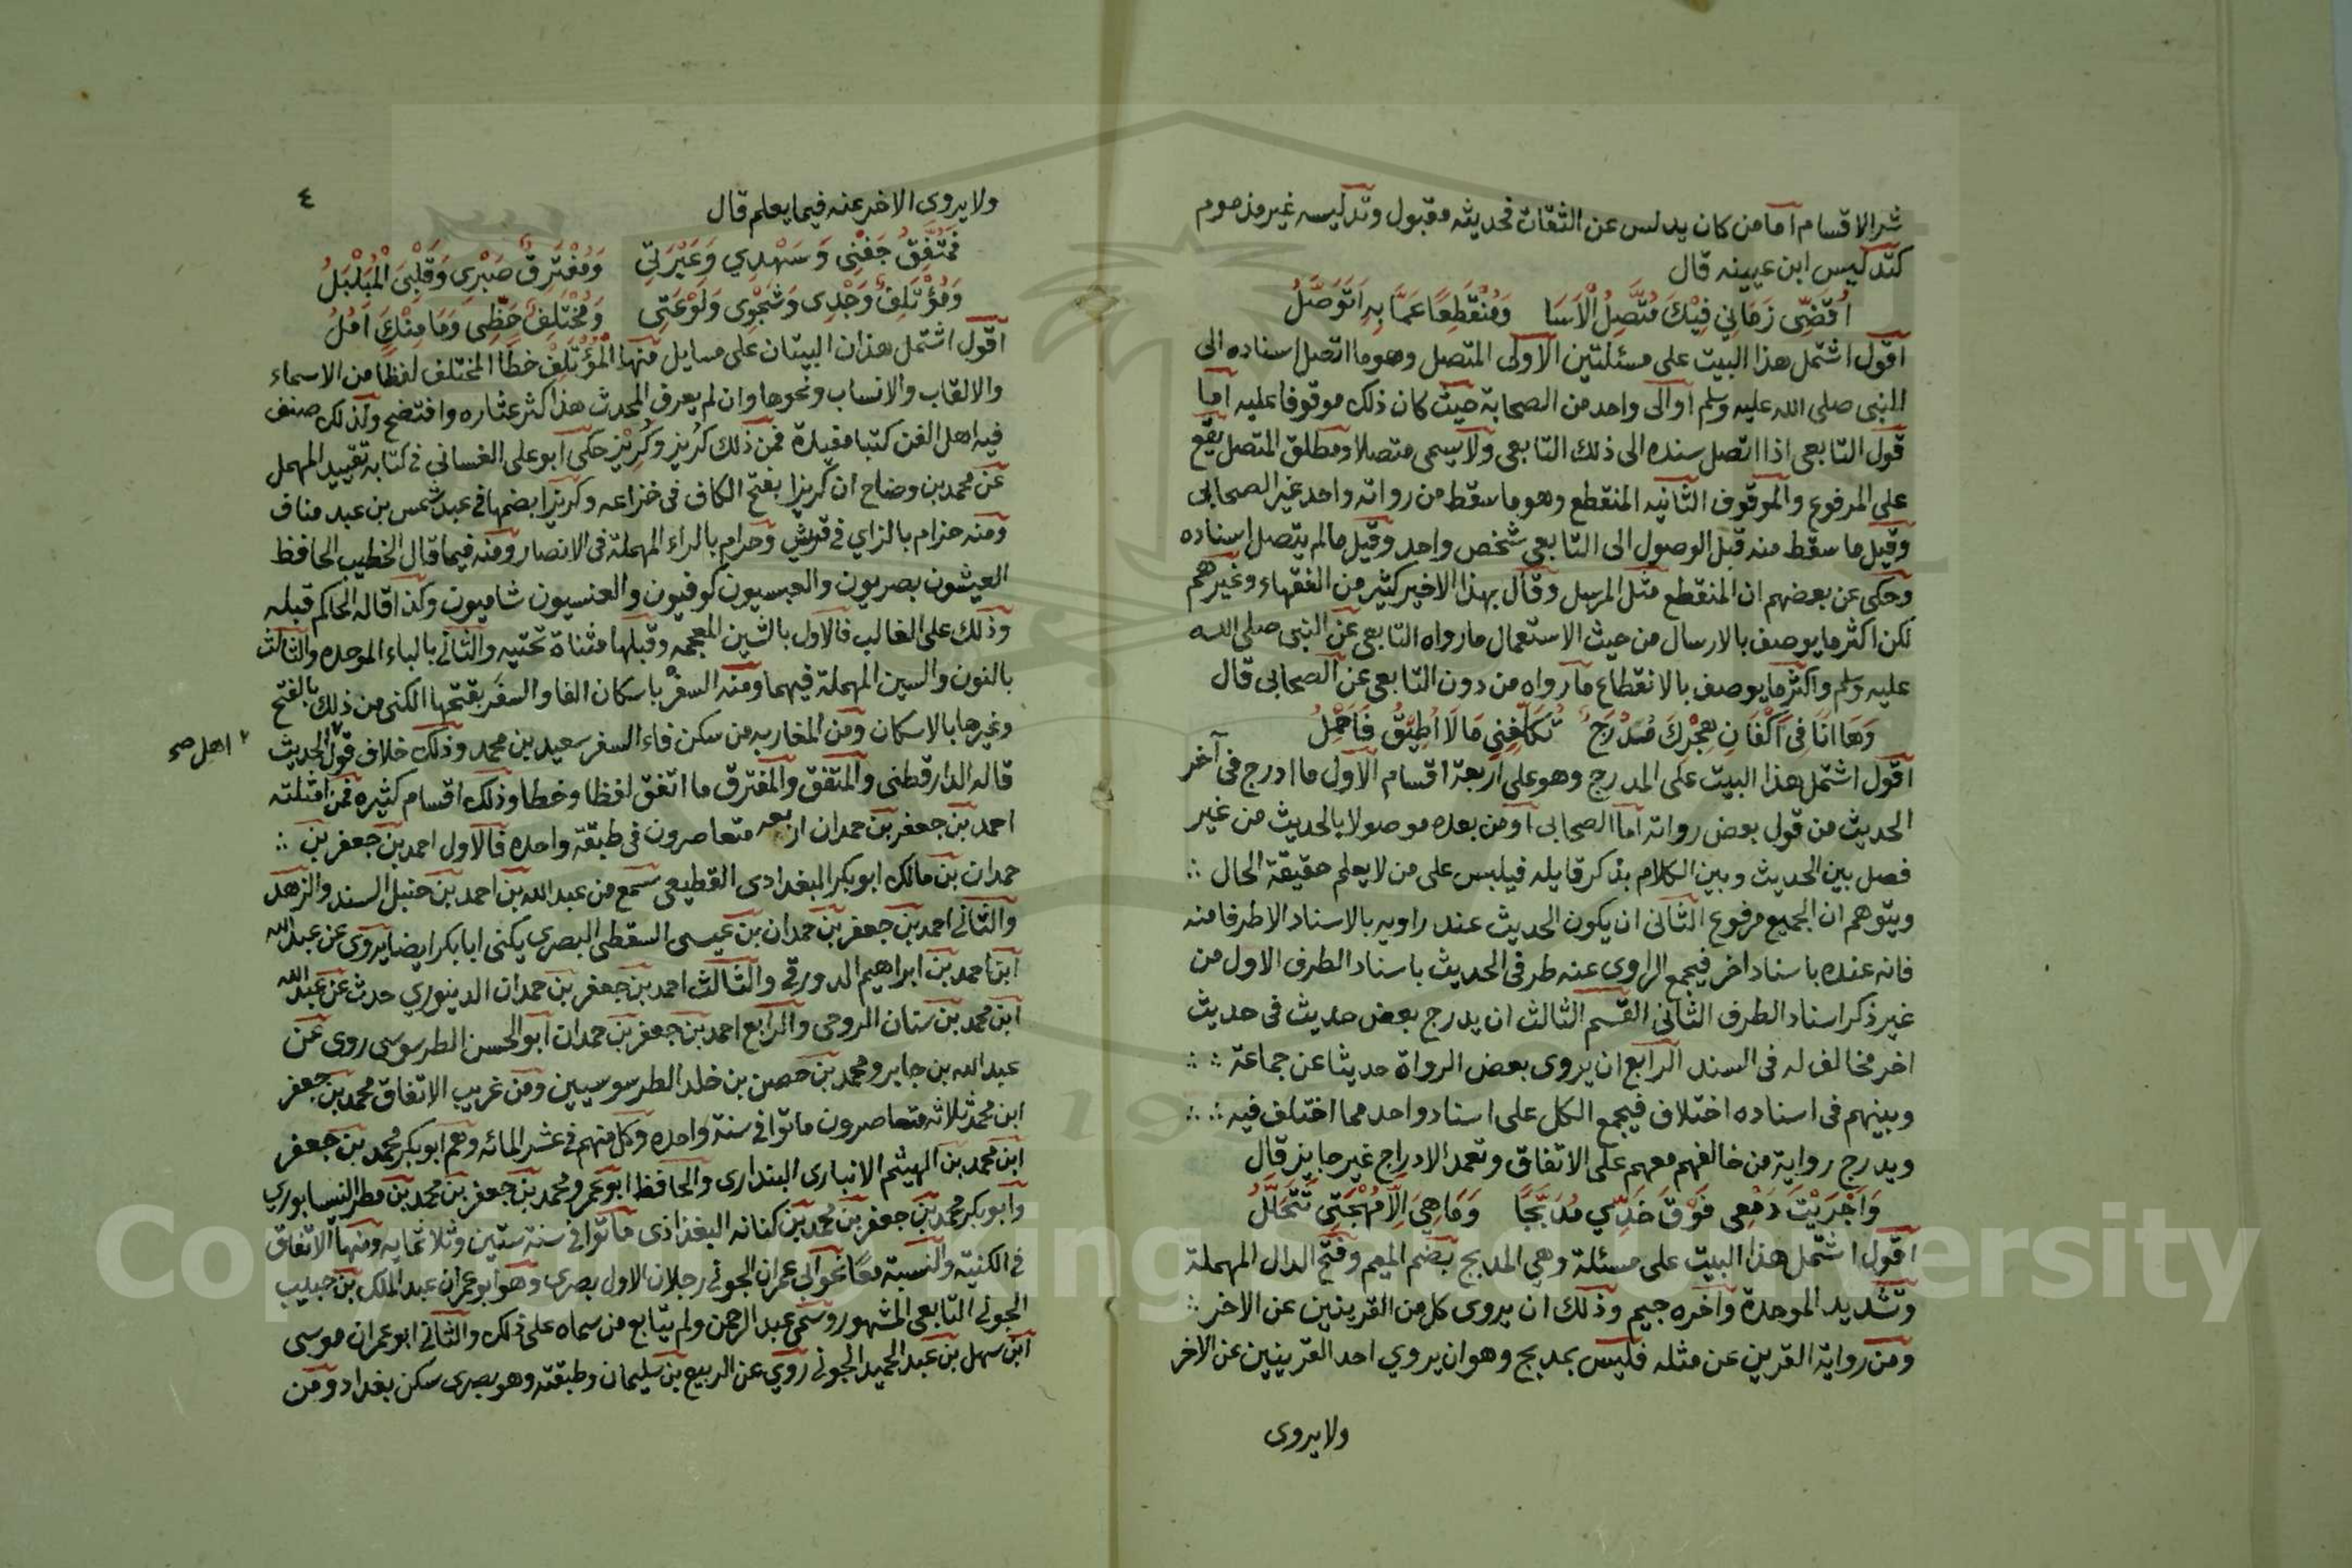 شر الاقسام اما من كان يدلس عن الثقات فحديثه مقبول وتدليسه غير مذموم
كتدليس ابن عيينه قال
اُقَضِّى زَمَانِي فِيْكَ مُتَّصِلُ الْاَسَا وَمُنْقَطِعًا عَمَّا بِهِ اَتَوَصَّلُ
اقول اشتمل هذا البيت على مسئلتين الاولى المتصل وهو ما اتصل اسناده الى
النبى صلى الله عليه وسلم او الى واحد من الصحابة حيث كان ذلك موقوفا عليه اما
قول التابعى اذا اتصل سنده الى ذلك التابعى ولا يسمى متصلا ومطلق المتصل يقع
على المرفوع والموقوف الثانيه المنقطع وهو ما سقط من رواته واحد غير الصحابى
وقيل ما سقط منه قبل الوصول الى التابعى شخص واحد وقيل ما لم يتصل اسناده
وحكى عن بعضهم ان المنقطع مثل المرسل وقال بهذا الاخير كثير من الفقهاء وغيرهم
لكن اكثر ما يوصف بالارسال من حيث الاستعمال ما رواه التابعى عن النبى صلى الله
عليه وسلم واكثر ما يوصف بالانقطاع ما رواه من دون التابعى عن الصحابى قال
وَهَا اَنَا فِى اَكْفَانِ هِجْرِكَ مُدْرَجٌ تُكَلِّفُنِي مَا لَا اُطِيْقُ فَاَحْمِلُ
اقول اشتمل هذا البيت على المدرج وهو على اربعة اقسام الاول ما ادرج فى آخر
الحديث من قول بعض رواته اما الصحابى او من بعده موصولا بالحديث من غير
فصل بين الحديث وبين الكلام بذكر قايله فيلبس على من لا يعلم حقيقة الحال ∴
ويتوهم ان الجميع مرفوع الثانى ان يكون الحديث عند راويه بالاسناد الا طرفا منه
فانه عنده باسناد اخر فيجمع الراوى عنه طرفى الحديث باسناد الطرف الاول من
غير ذكر اسناد الطرف الثانى القسم الثالث ان يدرج بعض حديث فى حديث
اخر مخالف له فى السند الرابع ان يروى بعض الرواة حديثا عن جماعة ∴ ∴
وبينهم فى اسناده اختلاف فيجمع الكل على اسناد واحد مما اختلف فيه ∴ ∴
ويدرج رواية من خالفهم معهم على الاتفاق وتعمد الادراج غير جايز قال
وَاَجْرَيْتَ دَمْعِى فَوْقَ خَدِّي مُدَبَّجًا وَمَا هِيَ اِلَّا مُهْجَتِى تَتَحَلَّلُ
اقول اشتمل هذا البيت على مسئلة وهي المدبج بضم الميم وفتح الدال المهملة
وتشديد الموحدة وآخره جيم وذلك ان يروى كل من القرينين عن الاخر ∴
ومن رواية القرين عن مثله فليس بمدبج وهو ان يروي احد القرينين عن الاخر
ولا يروى
٤
ولا يروى الاخر عنه فيما يعلم قال
فَمُتَّفِقٌ جَفْنِى وَسَهْدِي وَعَبْرَتِي وَمُفْتَرِقٌ صَبْرِى وَقَلْبِىَ الْمُبَلْبَلُ
وَمُؤْتَلِفٌ وَجْدِى وَشَجْوِى وَلَوْعَتِى وَمُخْتَلِفٌ حَظِّى وَمَا مِنْكَ اٰمُلُ
اقول اشتمل هذان البيتان على مسايل منها المؤتلف خطا المختلف لفظا من الاسماء
والالقاب والانساب ونحوها وان لم يعرف المحدث هذا كثر عثاره وافتضح ولذلك صنف
فيه اهل الفن كتبا مفيدة فمن ذلك كَرِيز وكُرَيْز حكى ابو على الغسانى فى كتابه تقييد المهمل
عن محمد بن وضاح ان كريزا بفتح الكاف فى خزاعه وكريزا بضمها فى عبد شمس بن عبد مناف
ومنه حزام بالزاي فى قريش وحرام بالراء المهملة فى الانصار ومنه فيما قال الخطيب الحافظ
العيشون بصريون والعبسيون كوفيون والعنسيون شاميون وكذا قاله الحاكم قبله
وذلك على الغالب فالاول بالشين المعجمه وقبلها مثناة تحتيه والثانى بالباء الموحده والثالث
بالنون والسين المهملة فيهما ومنه السفر باسكان الفا والسفر بفتحها الكنى من ذلك بالفتح
وغيرها بالاسكان ومن المغاربه من سكن فاء السفر سعيد بن محمد وذلك خلاف قول الحديث
اهل صح
قاله الدارقطنى والمتفق والمفترق ما اتفق لفظا وخطا وذلك اقسام كثيره فمن امثلته
احمد بن جعفر بن حمدان اربعه متعاصرون فى طبقة واحده فالاول احمد بن جعفر بن ∴
حمدان بن مالك ابو بكر البغدادى القطيعى سمع من عبد الله بن احمد بن حنبل السند والزهد
والثانى احمد بن جعفر بن حمدان بن عيسى السقطى البصرى يكنى ابا بكر ايضا يروى عن عبد الله
ابن احمد بن ابراهيم الدورقى والثالث احمد بن جعفر بن حمدان الدينوري حدث عن عبد الله
ابن محمد بن سنان الروحى والرابع احمد بن جعفر بن حمدان ابو الحسن الطرسوسى روى عن
عبد الله بن جابر ومحمد بن حصن بن خلد الطرسوسيين ومن غريب الاتفاق محمد بن جعفر
ابن محمد ثلاثه متعاصرون ماتوا فى سنة واحده وكل منهم فى عشر المائه وهم ابو بكر محمد بن جعفر
ابن محمد بن الهيثم الانبارى البندارى والحافظ ابو عمرو محمد بن جعفر بن محمد بن مطر النيسابوري
وابو بكر محمد بن جعفر بن محمد بن كنانه البغداذى ماتوا فى سنة ستين وثلاثمايه ومنها الاتفاق
فى الكنية والنسبة معا نحو ابى عمران الجونى رجلان الاول بصرى وهو ابو عمران عبد الملك بن حبيب
الجونى التابعى المشهور وسمى عبد الرحمن ولم يتابع من سماه على ذلك والثانى ابو عمران موسى
ابن سهل بن عبد الحميد الجونى روى عن الربيع بن سليمان وطبقته وهو بصرى سكن بغداد ومن
Copyright © King Saud University